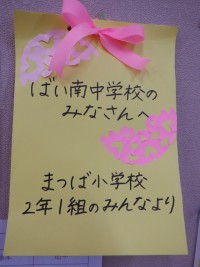 ばい南中学校の
みなさんへ
まつば小学校
2年1組のみんなより